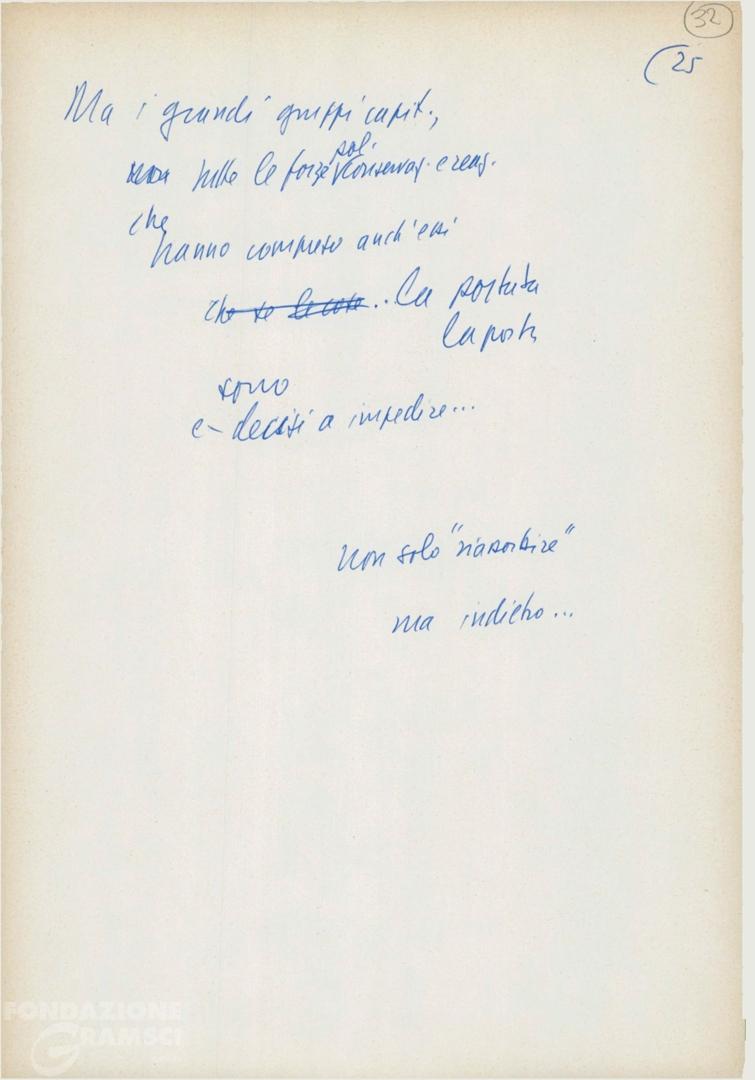 32
(25
Ma i grandi gruppi capit.,
tutte le forze pol. conservaz. e reaz.
che
hanno compreso anch'essi
che se le cose .. la portata
la posta
sono
e - decisi a impedire...
non solo "riassorbire"
ma indietro...
FONDAZIONE
GRAMSCI